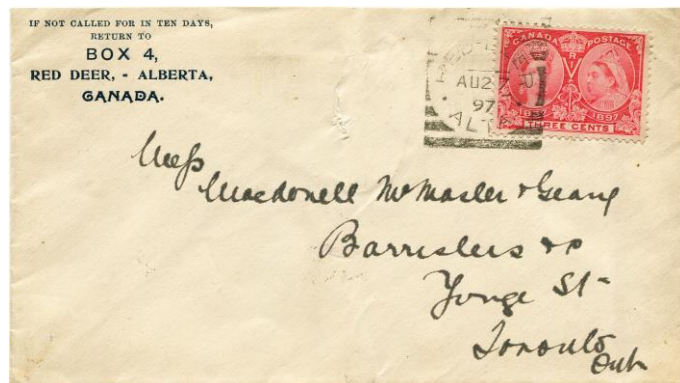 IF NOT CALLED FOR IN TEN DAYS,
RETURN TO
BOX 4,
RED DEER, - ALBERTA,
CANADA.
AU 27
97
ALTA
CANADA POSTAGE
1837 1897
THREE CENTS
Mess
Macdonell McMaster & Geary
Barristers &c
Yonge St
Toronto
Ont